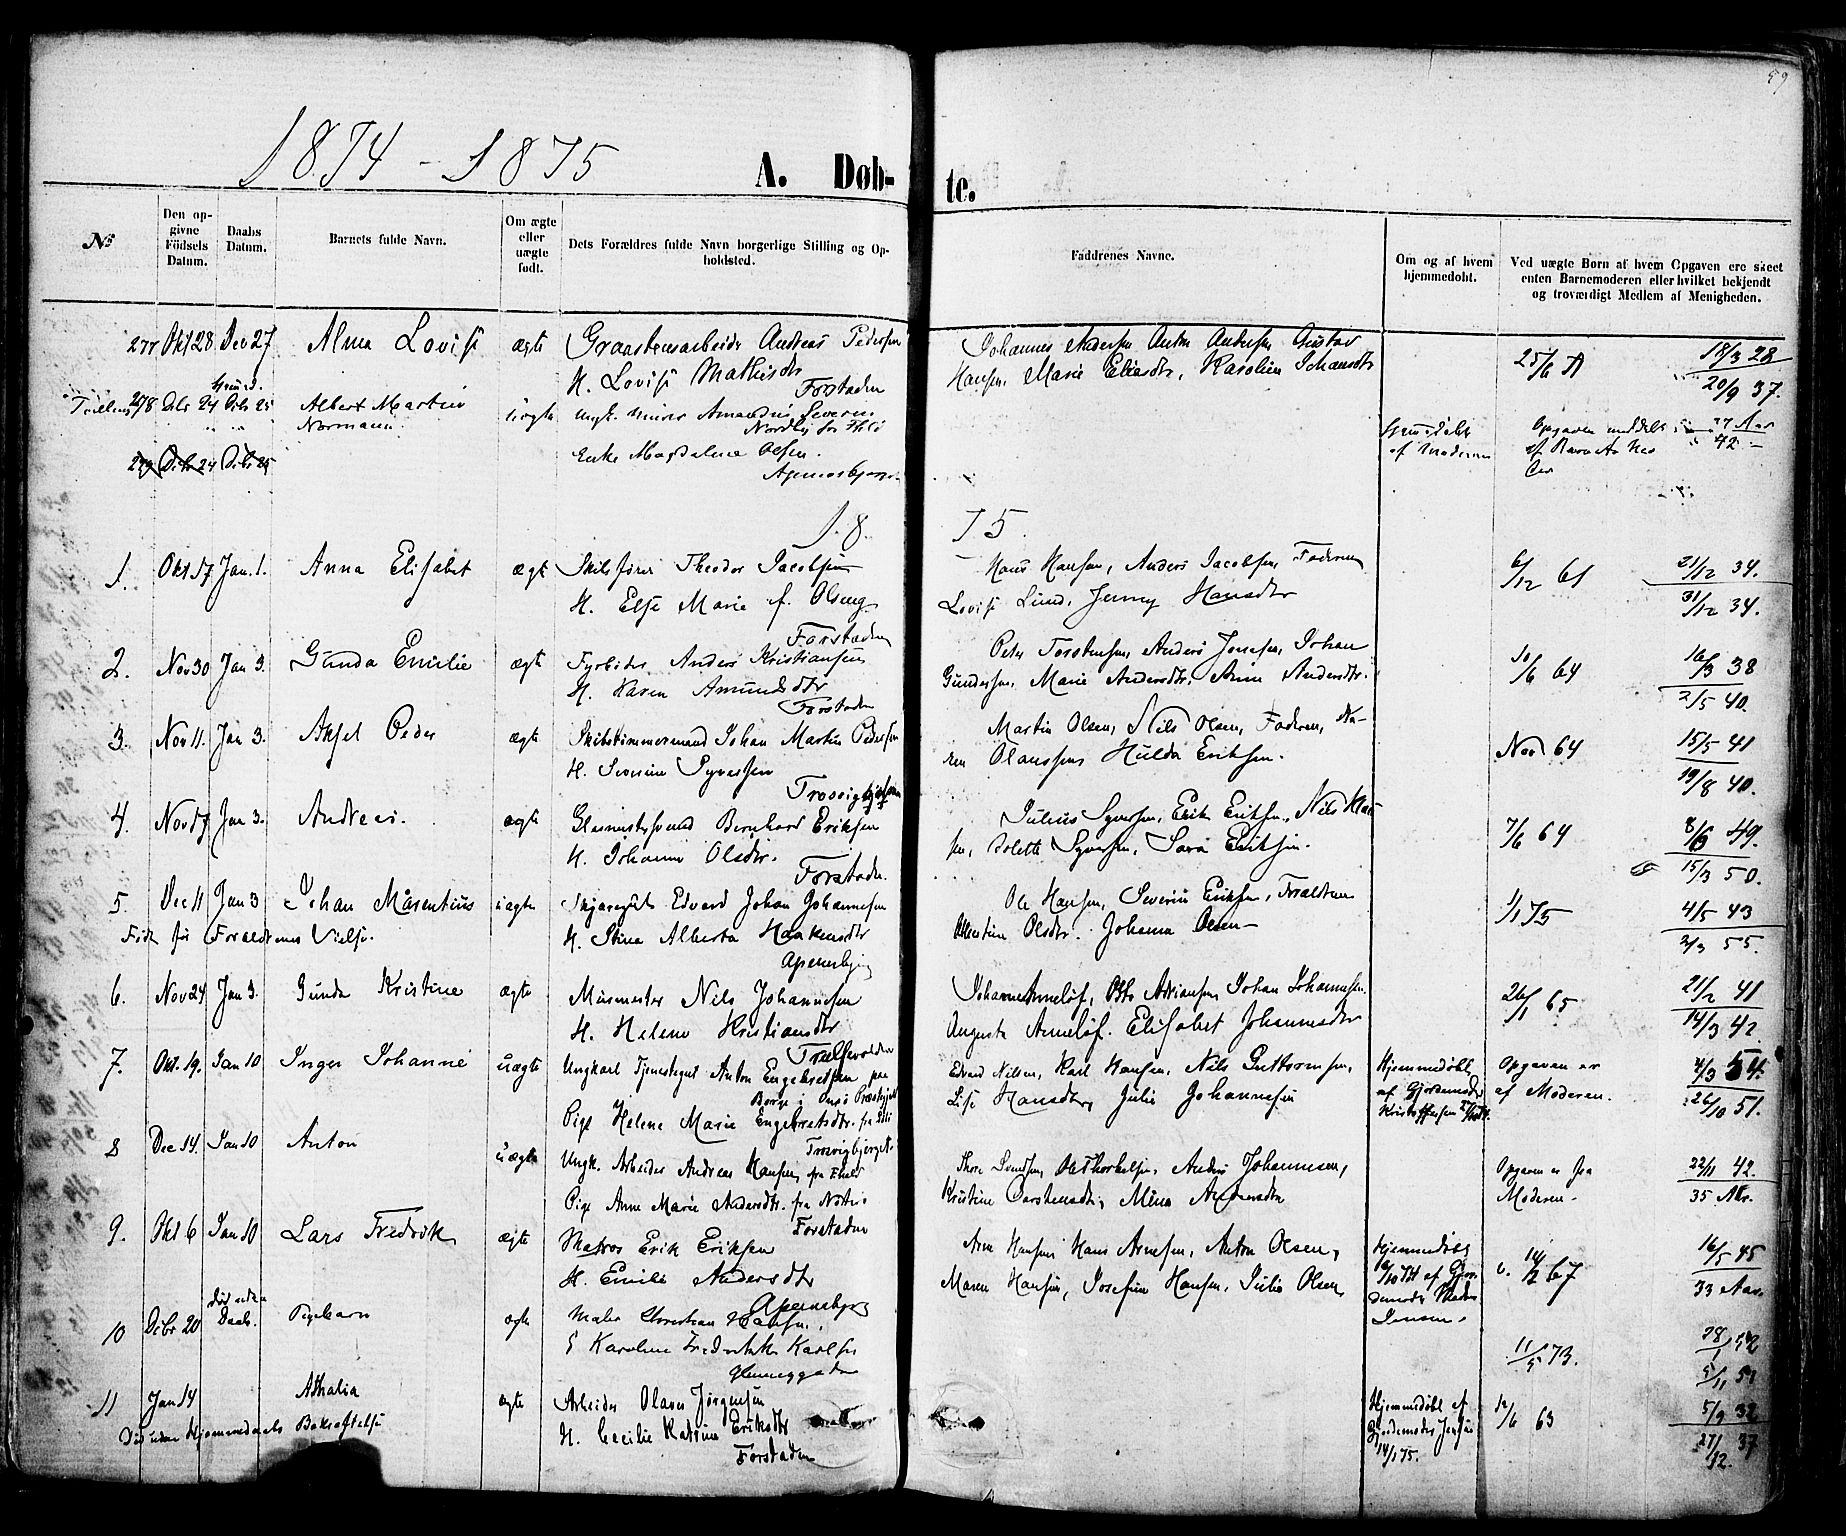 59
1874 - 1875
A. Døb-
te.
№
Den op-
givne
Födsels
Datum.
Daabs
Datum.
Barnets fulde Navn.
Om ægte
eller
uægte
født.
Dets Forældres fulde Navn borgerlige Stilling og Op-
holdsted.
Faddrenes Navne.
Om og af hvem
hjemmedøbt.
Ved uægte Børn af hvem Opgaven ere skeet
enten Barnemoderen eller hvilket bekjendt
og troværdigt Medlem af Menigheden.
277 Okt 28 Dec 27 Alma Lovise ægte Graastensarbeider Andreas Pedersen
H. Lovise Mathisdtr
Forstaden
Johannes Andersen Anton Andersen Gustav
Hansen, Marie Eliesdtr, Karoline Johansdtr
25/6
18/3 28
20/9 37.
278 Dcbr 24 Dcbr 25 Albert Martin
Normann
uægte Ungk. Amandus Severin
Enke Magdalene Olsen.
af Moderen
Opgaven meddelt
42
279 Dcbr 24 Dcbr 25
18
75.
1. Okt 17 Jan. 1. Anna Elisabet ægte Skibsfører Theodor Jacobsen
H. Else Marie f. Olsen
Forstaden
Hans Hansen, Anders Jacobsen, Faderen
Lovise Lund, Jenny Hansdtr
6/12 61
21/12 34.
31/12 34.
2. Nov 30 Jan 3. Gunda Emilie ægte Fyrbøder Anders Kristiansen
H. Karen Amundsdtr
Forstaden
Peter Torstensen, Anders Jonsen, Johan
Gundersen, Marie Andersdtr, Anne Andersdtr.
10/6 64
16/3 38
2/5 40.
3. Nov 11. Jan 3. Aksel Peder ægte Skibstømmermand Johan Martin Pedersen
H. Severine Syversen
Martin Olsen, Nils Olsen, Faderen, Ka-
ren Olaussen, Hulda Eriksen.
Nov 64
15/5 41
19/8 40.
4. Nov 17 Jan 3. Andreas. ægte Glasmestersvend Bernhard Eriksen
H. Johanne Olsdtr.
Forstaden.
Julius Syversen, Erik Eriksen, Nils Klau-
sen, Bolette Syversen, Sara Eriksen.
7/6 64
8/6 49.
15/3 50.
5. Dec 11 Jan 3 Johan Marentius uægte Edvard Johan Johannesen
Født før Forældrenes Vielse.
H. Stina Alberta Haakensdtr
Apenesbjerg
Ole Hansen, Severin Eriksen, Forældrene
Olsdtr. Johanna Olsen
1/1 75
4/5 43
2/3 55.
6. Nov 24 Jan 3. Gunda Kristine ægte Murmester Nils Johannesen
H. Helene Kristiansdtr
Otto Adriansen, Johan Johannesen
Augusta Anneløf. Elisabet Johannesdtr
26/1 65
21/2 41
14/3 42.
7. Okt. 19. Jan 10 Inger Johanne uægte Ungkarl Tjenestegut Anton Engebretsen fra
Pige Helene Marie Engebretsdtr.
Edvard Nilsen, Karl Hansen, Nils Guttormsen,
Lise Hansdtr, Julie Johannesen
Hjemmedøbt
af Gjordemoder
Opgaven er
af Moderen.
4/3 54.
26/10 51.
8 Dec 14. Jan 10 Anton uægte Ungk. Arbeider Andreas Hansen
Pige Anne Marie Andersdtr. fra
Forstaden
Thore Lundsen, Ole Thorkelsen, Anders Johannesen,
Kristine Torstensdtr, Mina Andersdtr
Opgaven er fra
Moderen.
22/11 42.
35 Aar.
9. Okt 6 Jan 10 Lars Fredrik ægte Matros Erik Eriksen
H. Emilie Andersdtr
Apenesbjerg
Arne Hansen, Hans Arnesen, Anton Olsen,
Maren Hansen, Josefine Hansen, Julie Olsen
Hjemmedøbt
Jensen.
14/2 67
16/5 45
33 Aar.
10 Dcbr 20 Død uden
Daab. Pigebarn ægte Maler Christian Hansen,
E Karoline Fredrikke Karlsen
11/5 73.
28/1 52
5/11 51
11 Jan 14 Athalia ægte Arbeider Olaves Jørgensen
Død uden Hjemmedaabs Bekræftelse
H. Cecilie Katrine Eriksdtr
Forstaden
Hjemmedøbt af
Gjordemoder Jensen
14/1 75.
12/6 63
5/9 32
27/12 37